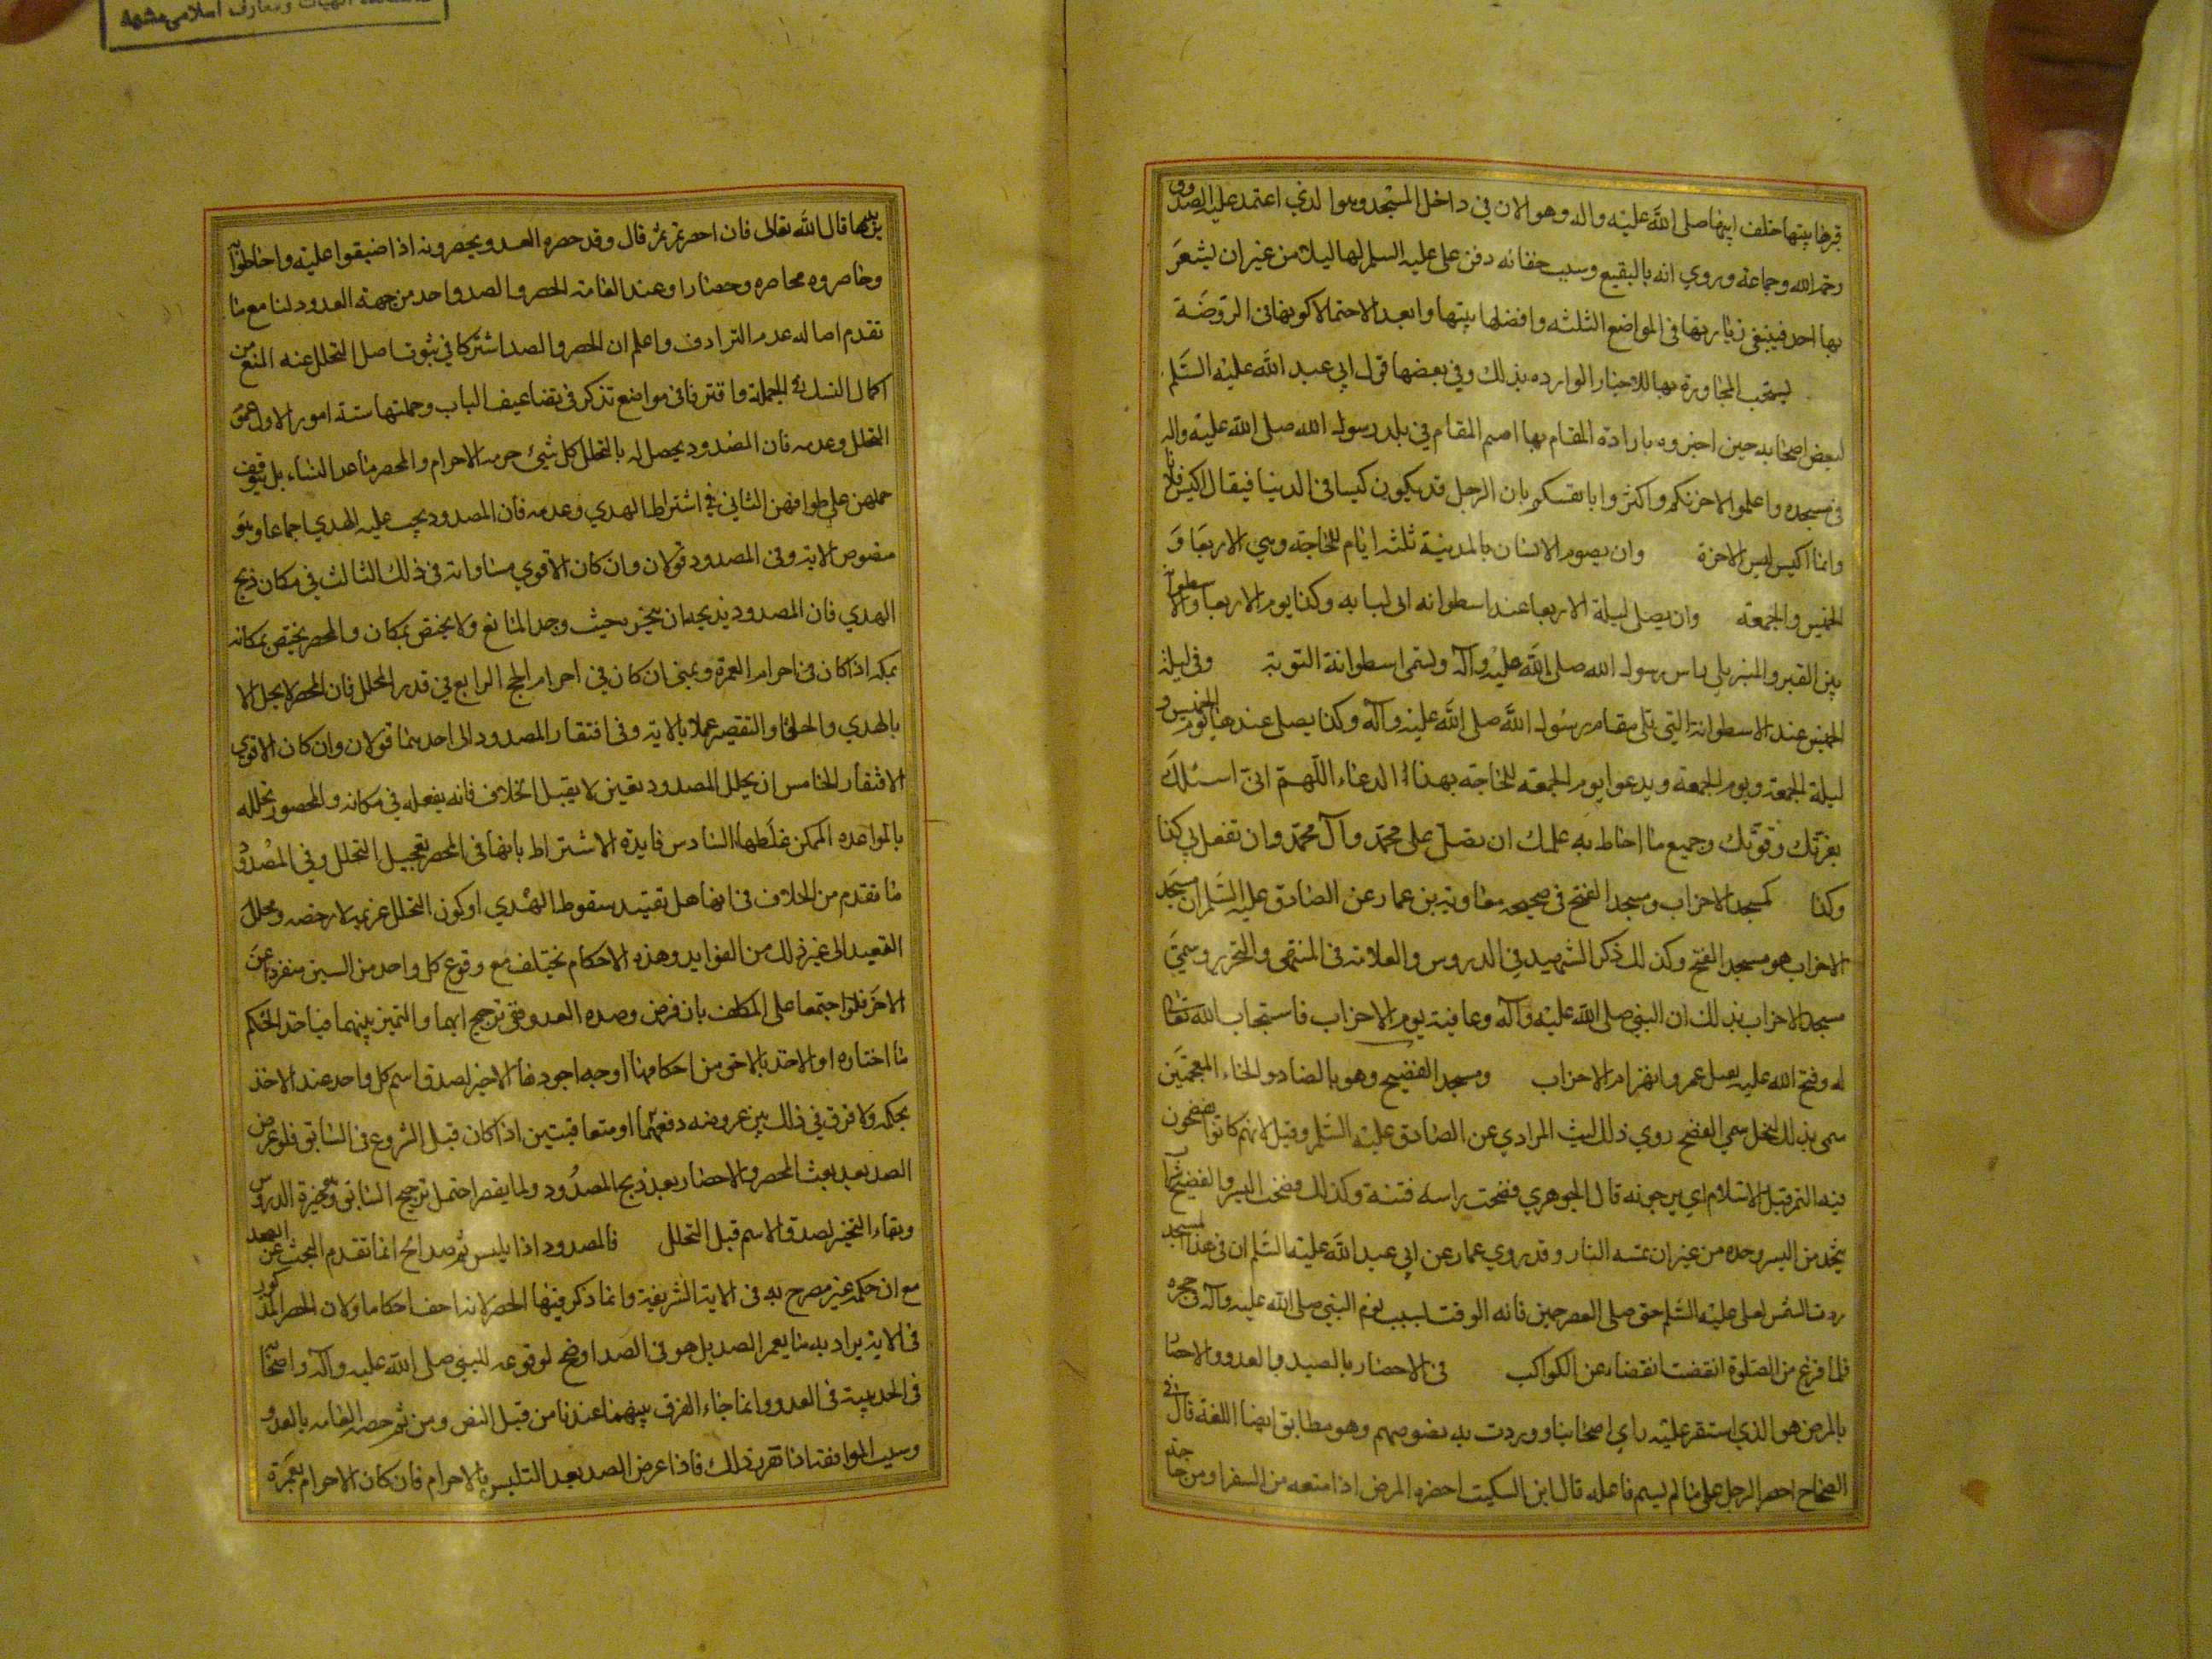 قبرها بيتها خلف ابيها صلى الله عليه واله وهو الان في داخل المسجد وهو الذي اعتمد عليه الصدوق
رحمه الله وجماعة وروي انه بالبقيع وسبب خفائه دفن علي عليه السلم لها ليلا من غير ان يشعر
بها احد فينبغي زيارتها في المواضع الثلثه وافضلها بيتها وابعد الاحتمالا كونها في الروضة
يستحب المجاورة بها للاخبار الوارده بذلك وفي بعضها قول ابي عبد الله عليه السلم
لبعض اصحابه حين اخبروه بارادة المقام بها اصم المقام في بلد رسول الله صلى الله عليه واله
في مسجده واعلموا لاخرتكم واكثروا بانفسكم بان الرجل قد يكون كيسا في الدنيا فيقال اكيس فلانا
وانما الكيس كيس الاخرة وان يصوم الانسان بالمدينة ثلثه ايام للحاجة وهي الاربعا و
الخميس والجمعة وان يصلي ليلة الاربعا عند اسطوانه ابي لبابه وكذا يوم الاربعا والاسطوانة
بين القبر والمنبر يلي راس رسول الله صلى الله عليه وآله وتسمى اسطوانة التوبة وفي ليلة
الخميس عند الاسطوانة التي تلي مقام رسول الله صلى الله عليه وآله وكذا يصلي عندها يوم الخميس و
ليلة الجمعة ويوم الجمعة ويدعوا يوم الجمعة للحاجة بهذا الدعاء اللهم اني اسئلك
بعزتك وقوتك وجميع ما احاط به علمك ان تصلي على محمد وآل محمد وان تفعل بي كذا
وكذا كمسجد الاحزاب ومسجد الفتح في صحيحه معاوية بن عمار عن الصادق عليه السلم ان مسجد
الاحزاب هو مسجد الفتح وكذلك ذكر الشهيد في الدروس والعلامة في المنتهى والتحرير وسمي
مسجد الاحزاب بذلك ان النبي صلى الله عليه وآله دعا فيه يوم الاحزاب فاستجاب الله تعالى
له وفتح الله عليه بقتل عمرو وانهزام الاحزاب ومسجد الفضيح وهو بالضاد والخاء المعجمتين
سمي بذلك لنخل سمي الفضح روي ذلك ليث المرادي عن الصادق عليه السلم وقيل لانهم كانوا يفضخون
فيه التمر قبل الاسلام اي يرجونه قال الجوهري فضخت راسه فتنة وكذلك فضخت البسر والفضيخ شراب
يتخذ من البسر وحده من غير ان تمسه النار وقد روي عمار عن ابي عبد الله عليه السلم ان في هذا المسجد
ردت الشمس لعلي عليه السلم حتى صلى العصر حين فاته الوقت بسبب نوم النبي صلى الله عليه وآله في حجره
فلما فرغ من الصلوة انقضت انقضاء عن الكواكب في الاحصار بالصيد والعدو والاحصا
بالمرض هو الذي استقر عليه راي اصحابنا ووردت به نصوصهم وهو مطابق ايضا اللغة قال في
الصحاح احصر الرجل على ما لم يسم فاعله قال ابن السكيت احصره المرض اذا منعه من السفر او من حاجة
يريدها قال الله تعالى فان احصرتم ثم قال وقد حصره العدو يحصرونه اذا ضيقوا عليه واحاطوا
وحاصروه محاصره وحصارا وعند العامة الحصر والصد واحد من جهة العدو ولنا مع ما
تقدم اصالة عدم الترادف واعلم ان الحصر والصد اشتركا في ثبوت اصل التحلل عنه المنع من
اكمال النسك في الجملة وافترقا في مواضع تذكر في تضاعيف الباب وجملتها ستة امور الاول عموم
التحلل وعدمه فان المصدود يحصل له بالتحلل كل شيئ حرمه الاحرام والمحصر ما عدا النساء بل يتوقف
حلهن على طوافهن الثاني في اشتراط الهدي وعدمه فان المصدود يجب عليه الهدي اجماعا وهو
منصوص الاية وفي المصدود قولان وان كان الاقوي مساواته في ذلك الثالث في مكان ذبح
الهدي فان المصدود يذبحه ان ينحر بحيث وجد المانع ولا يختص بمكان والمحصر يختص بمكانه
بمكة اذا كان في احرام العمرة وبمنى ان كان في احرام الحج الرابع في قدر المحلل فان المحصر لا يحل الا
بالهدي والحلق او التقصير عملا بالاية وفي افتقار المصدود الى احدهما قولان وان كان الاقوي
الافتقار الخامس ان يحلل المصدود يقين لا يقبل الخلاف فانه يفعله في مكانه والمحصور تحلله
بالمواعده الممكن غلطها السادس فايدة الاشتراط بانها في المحصر تعجيل التحلل وفي المصدود
ما تقدم من الخلاف في انها هل تفيد سقوط الهدي او كون التحلل عزيمه لا رخصه ومحلل
القعيد الى غير ذلك من الفوايد وهذه الاحكام تختلف مع وقوع كل واحد من السببين منفردا عن
الاخر فلو اجتمعا على المكلف بان فرض وصده العدو ففي ترجيح ايهما والتمييز بينهما فياخذ الحكم
ما اختاره او الاخذ بالاخف من احكامهما اوجه اجودها الاخير لصدق اسم كل واحد عند الاخذ
بحكمه ولا فرق في ذلك بين عروضه دفعة او متعاقبتين اذا كان قبل الشروع في السابق فلو عرض
الصد بعد بعث المحصر والاحصار بعد ذبح المصدود ولما يقصر احتمل ترجيح السابق وهو خيرة الدروس
وبقاء التخير لصدق الاسم قبل التحلل فالمصدود اذا يلبس ثم صد الخ انما تقدم البحث عن الصد
مع ان حكمه غير مصرح به في الاية الشريفة وانما ذكر فيها الحصر لانه اخف احكاما ولان الحصر المذكور
في الاية يراد به ما يعم الصد بل هو في الصد اوضح لوقوعه للنبي صلى الله عليه وآله واصحابه
في الحديبية في العدو وانما جاء الفرق بينهما عندنا من قبل النص ومن ثم حصه العامه بالعدو
وسبب الموافقه اذا تقرر ذلك فاذا عرض الصد بعد التلبس بالاحرام فان كان الاحرام بعمرة